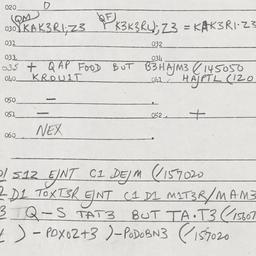 020 0
(QM) (QF)
030 KAK3R1;Z3 K3K3RU;Z3 = KAK3R1-Z3
031 032
033 034
035 + QAP FOOD BUT B3HAJM3 (/145050
040 KROUIT 041 HAJPTL (120
050 -
051 = 052 +
060 NEX
512 EJNT C1 DEJM (/157020
2 D1 TOXT3R EJNT C1 D1 M1T3R/MAM3
3 Q-S TAT3 BUT TA.T3 (/15807
) - POXOZ+3 )-PODOBN3 (/157020